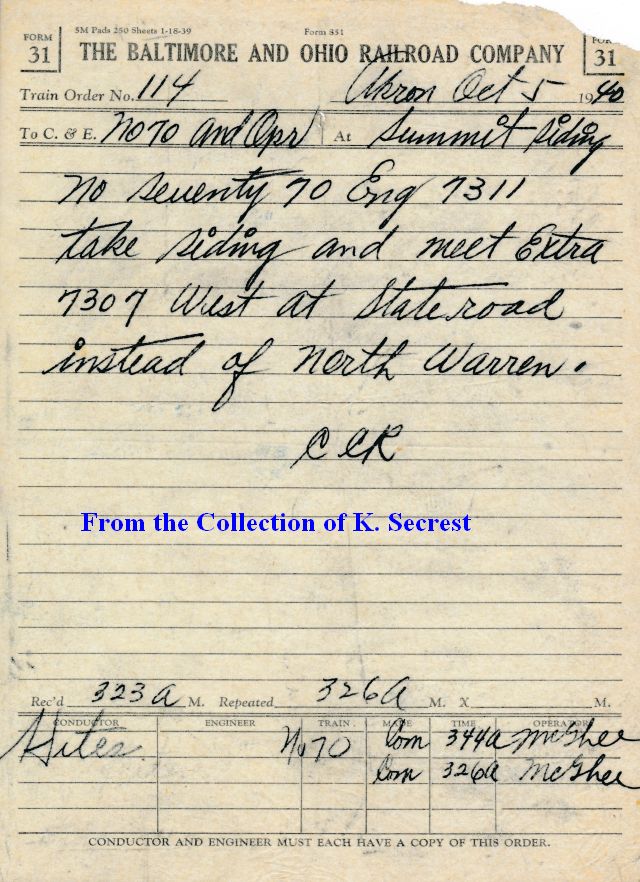 5M Pads 250 Sheets 1-18-39 Form 831
FORM 31 THE BALTIMORE AND OHIO RAILROAD COMPANY FORM 31
Train Order No. 114 Akron Oct 5 1940
To C. & E. No 70 and Opr At Summit siding
No seventy 70 Eng 7311
take siding and meet Extra
7307 West at State road
instead of North Warren.
C C R
From the Collection of K. Secrest
Rec'd 323 A M. Repeated 326 A M. X M.
CONDUCTOR ENGINEER TRAIN MADE TIME OPERATOR
Hites No 70 Com 344a McGhee
Com 326a McGhee
CONDUCTOR AND ENGINEER MUST EACH HAVE A COPY OF THIS ORDER.